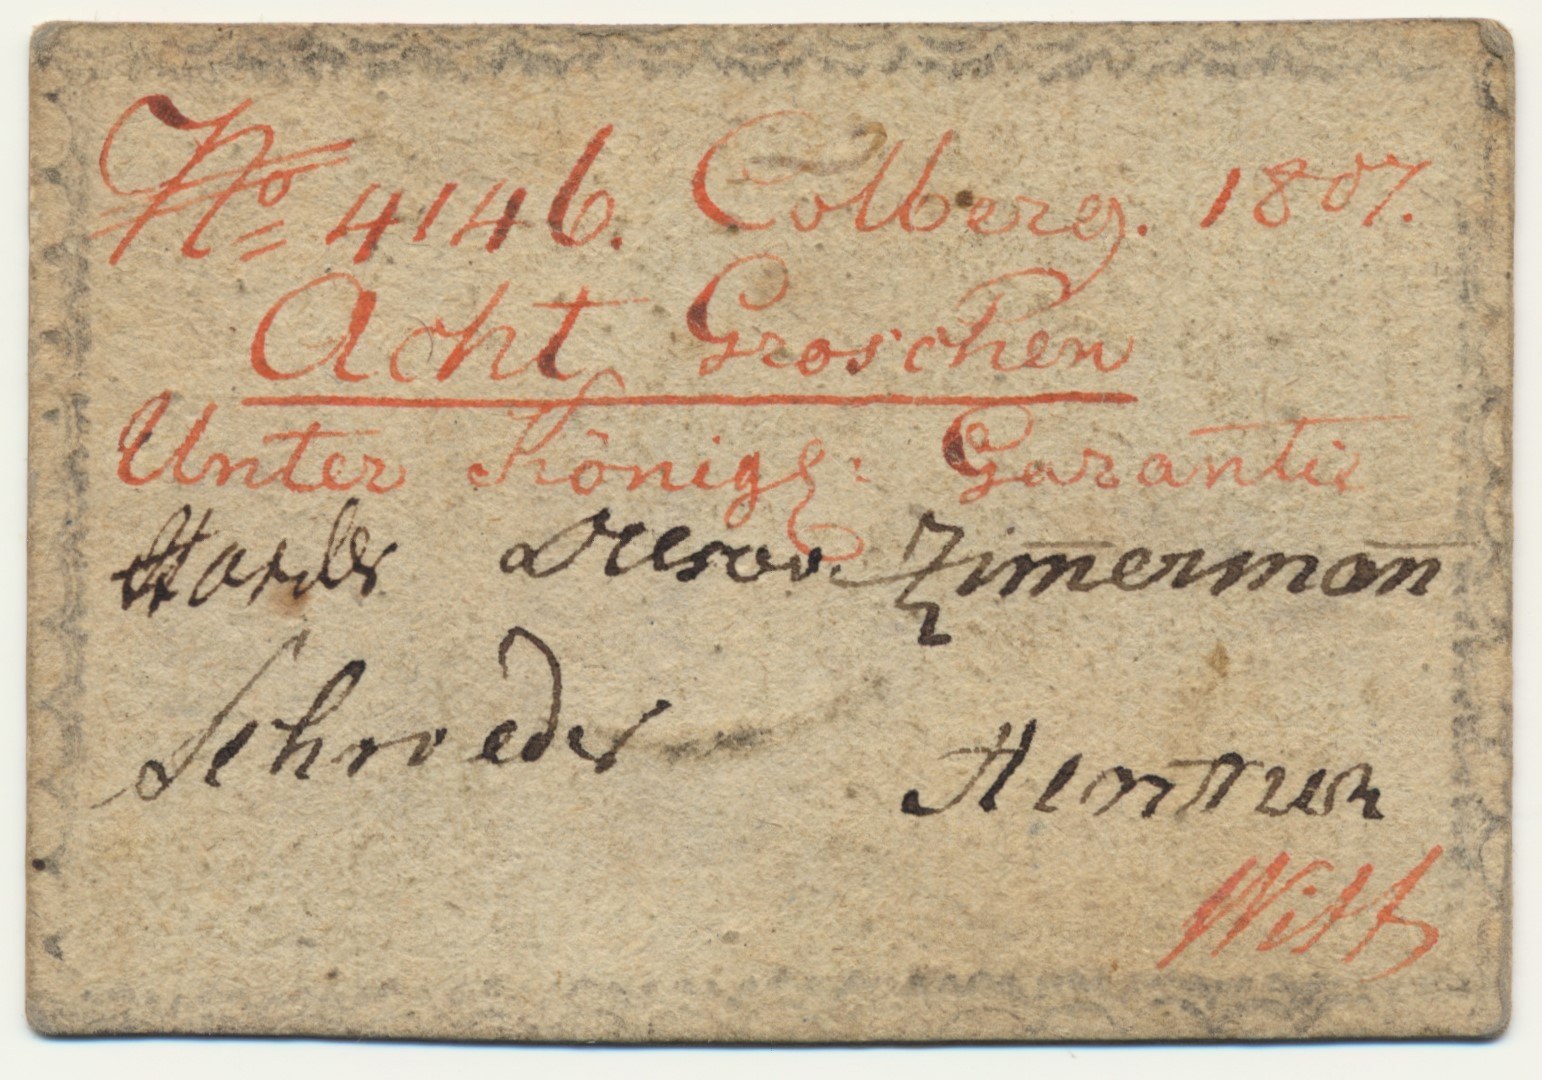 No 4146. Colberg. 1807.
Acht Groschen
Unter Königl: Garantie
Dresow. Zimermann
Schroeder
Witt